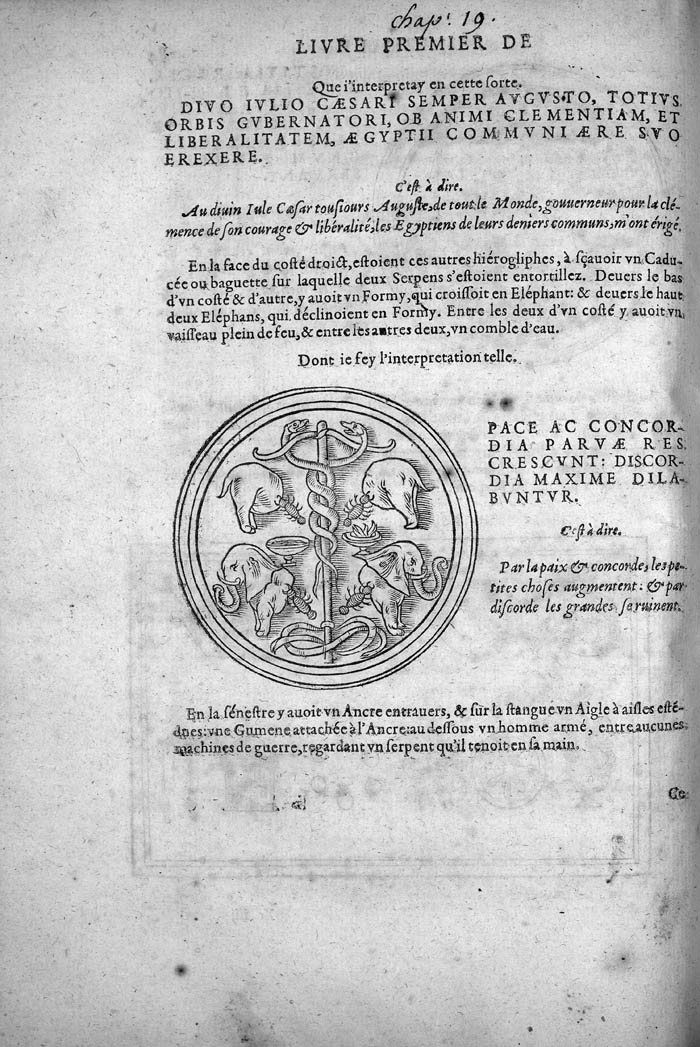 chapr. 19.
LIVRE PREMIER DE
Que i'interpretay en cette ſorte.
DIVO IVLIO CÆSARI SEMPER AVGVSTO, TOTIVS
ORBIS GVBERNATORI, OB ANIMI CLEMENTIAM, ET
LIBERALITATEM, ÆGYPTII COMMVNI ÆRE SVO
EREXERE.
C'eſt à dire.
Au diuin Iule Cæſar touſiours Auguſte, de tout le Monde, gouuerneur pour la clé-
mence de ſon courage & libéralité, les Egyptiens de leurs deniers communs, m'ont érigé.
En la face du coſté droict, eſtoient ces autres hiérogliphes, à ſçauoir vn Cadu-
cée ou baguette ſur laquelle deux Serpens s'eſtoient entortillez. Deuers le bas
d'vn coſté & d'autre, y auoit vn Formy, qui croiſſoit en Eléphant: & deuers le haut
deux Eléphans, qui déclinoient en Formy. Entre les deux d'vn coſté y auoit vn
vaiſſeau plein de feu, & entre les autres deux, vn comble d'eau.
Dont ie fey l'interpretation telle.
PACE AC CONCOR-
DIA PARVÆ RES
CRESCVNT: DISCOR-
DIA MAXIME DILA-
BVNTVR.
C'eſt à dire.
Par la paix & concorde, les pe-
tites choſes augmentent: & par
diſcorde les grandes ſe ruinent.
En la ſéneſtre y auoit vn Ancre entrauers, & ſur la ſtangue vn Aigle à aiſles eſté-
dues: vne Gumene attachée à l'Ancre: au deſſous vn homme armé, entre aucunes
machines de guerre, regardant vn ſerpent qu'il tenoit en ſa main.
Ce